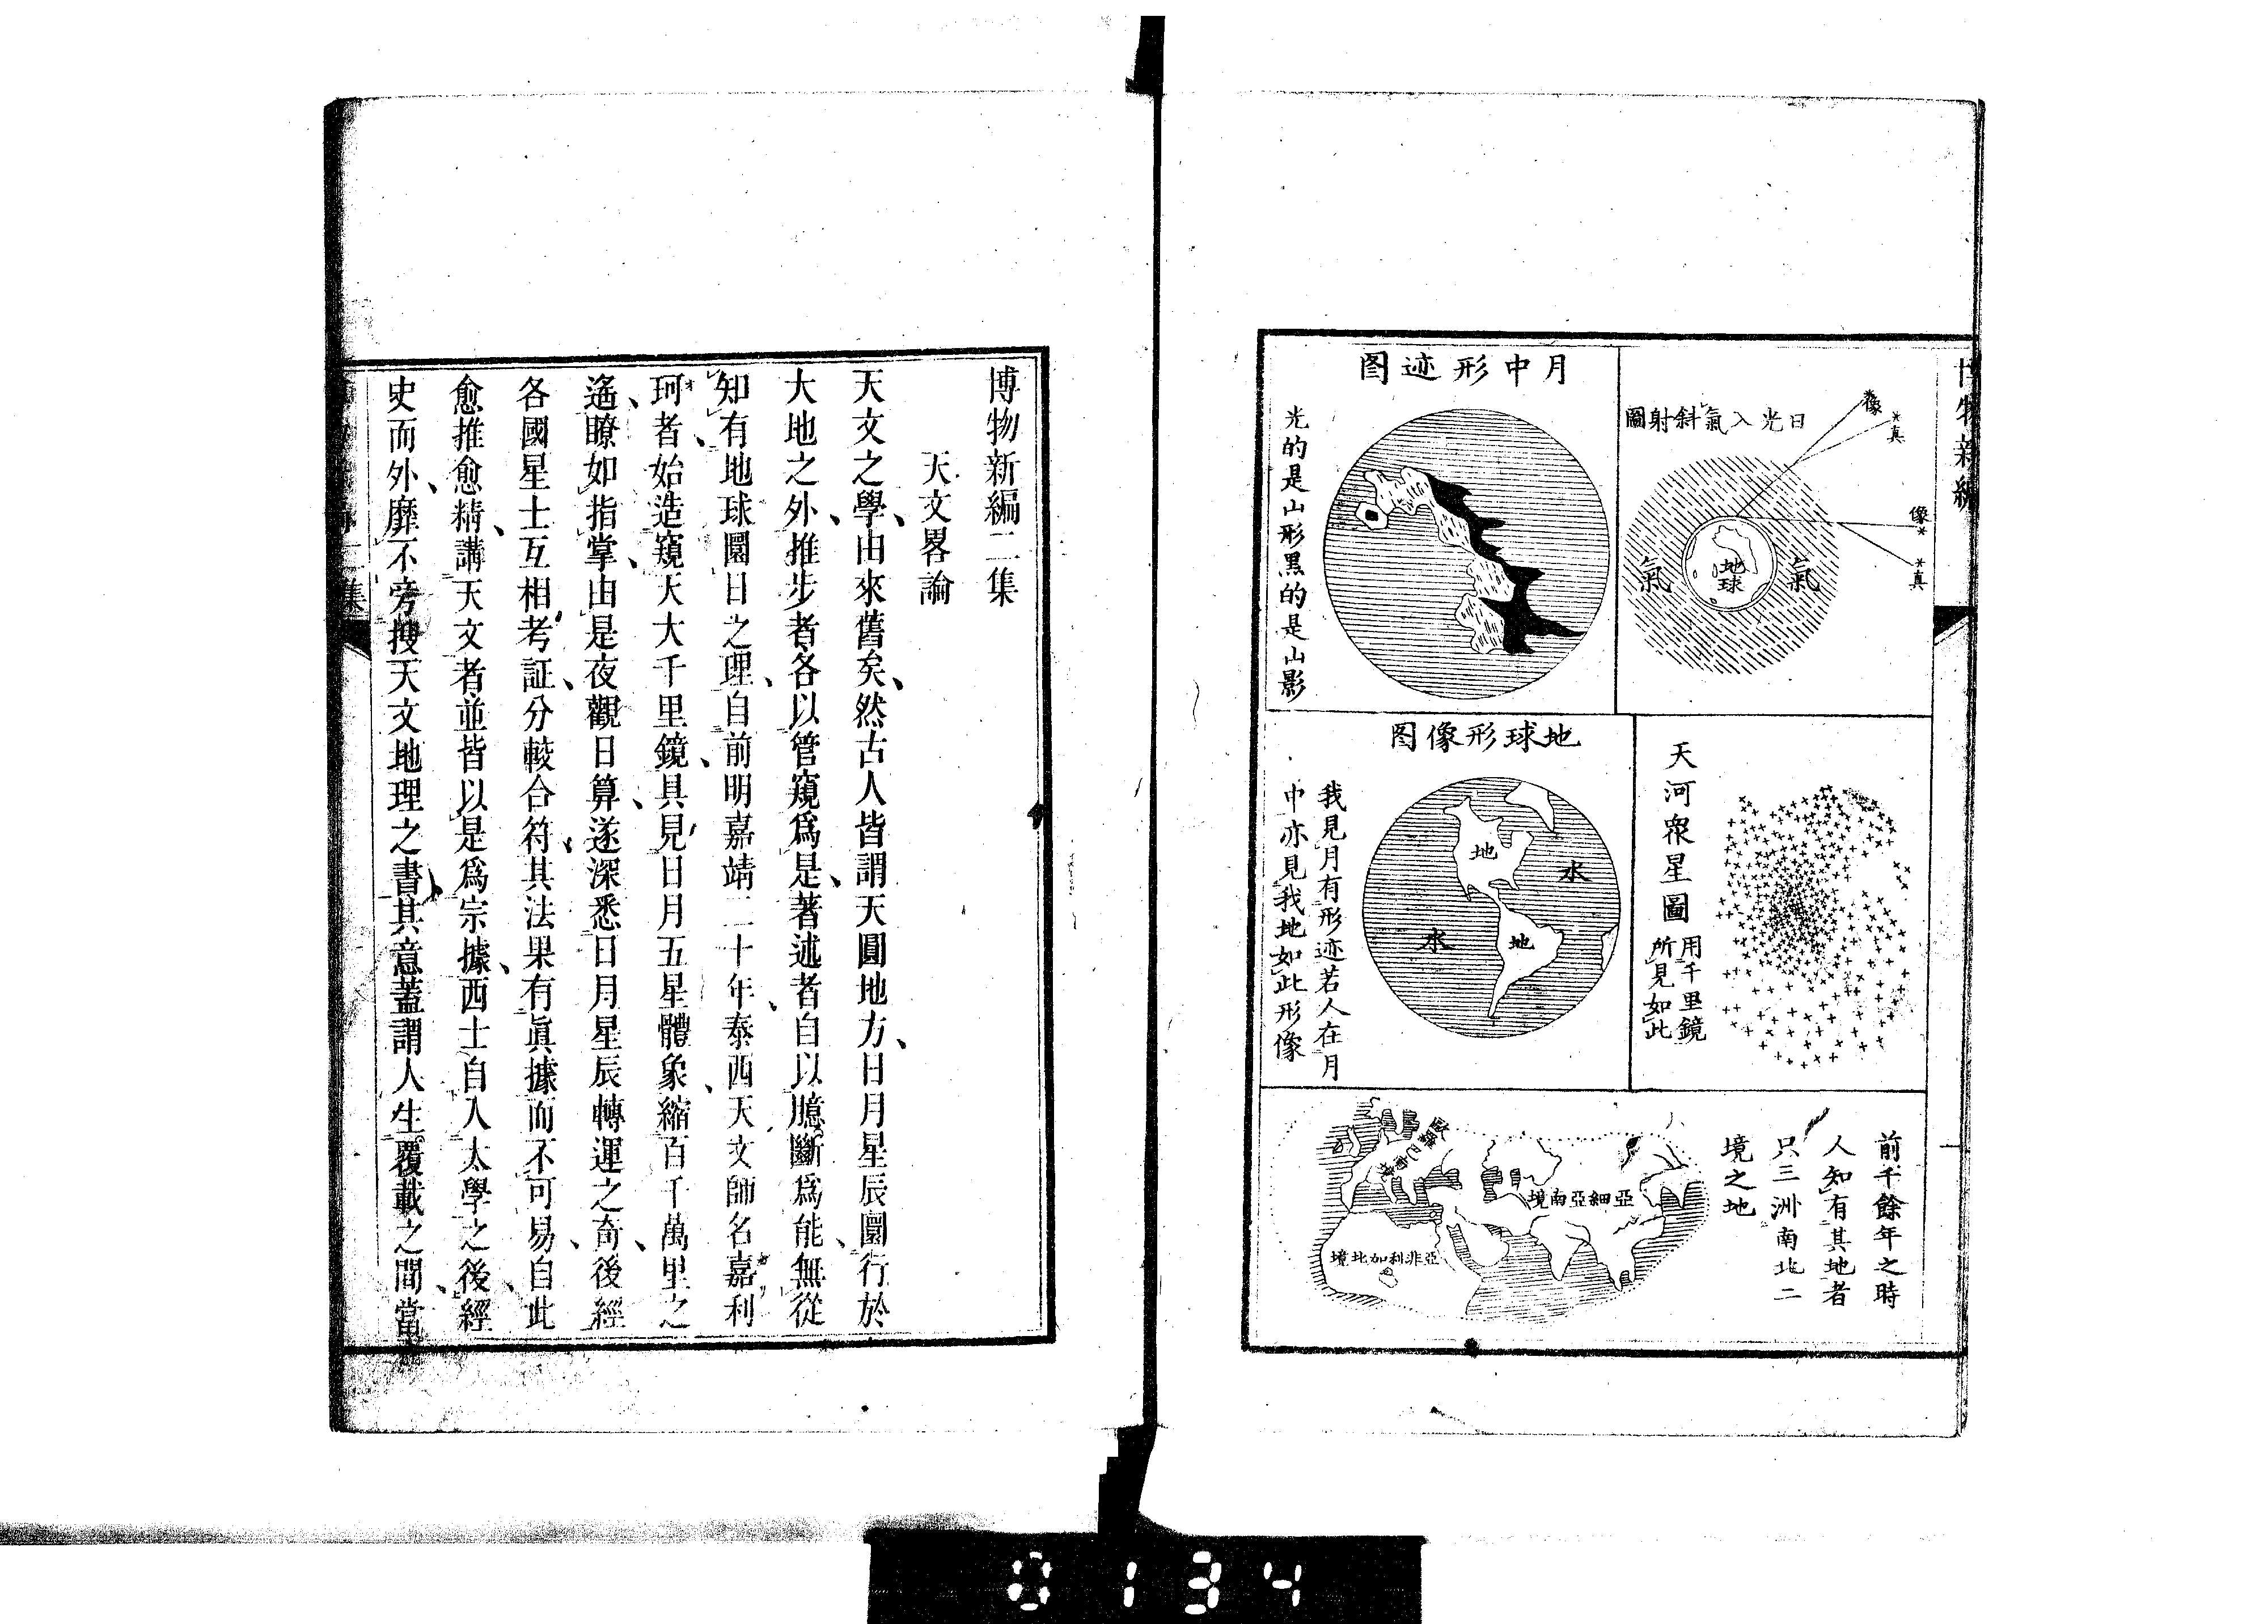 博物新編
日光入氣斜射圖
像
真
像
真
氣
地球
氣
月中形迹图
光的是山形黑的是山影
天河衆星圖
用千里鏡
所見如此
地球形像图
地
水
水
地
我見月有形迹若人在月
中亦見我地如此形像
前千餘年之時
人知有其地者
只三洲南北二
境之地
歐羅巴南境
亞細亞南境
亞非利加北境
博物新編二集
天文畧論
天文之學由來舊矣然古人皆謂天圓地方日月星辰圜行於
大地之外推步者各以管窺爲是著述者自以臆斷爲能無從
知有地球圜日之理自前明嘉靖二十年泰西天文師名嘉利
珂者始造窺天大千里鏡具見日月五星體象縮百千萬里之
遙瞭如指掌由是夜觀日算遂深悉日月星辰轉運之奇後經
各國星士互相考証分較合符其法果有眞據而不可易自此
愈推愈精講天文者並皆以是爲宗據西士自人太學之後經
史而外靡不旁搜天文地理之書其意蓋謂人生覆載之間當
二集
0134